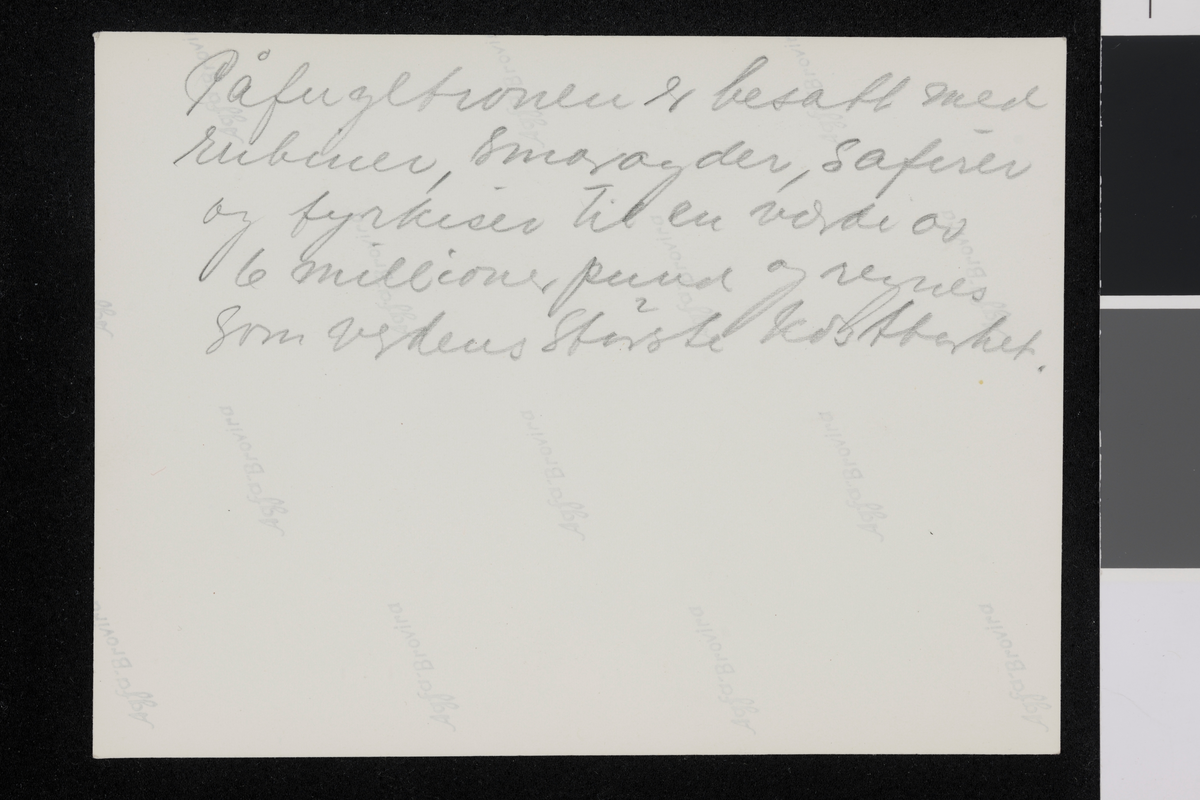 Påfugltronen er besatt med
rubiner, smaragder, safirer
og tyrkiser til en verdi av
6 millioner pund og regnes
som verdens største kostbarhet.
Agfa-Brovira
Agfa-Brovira
Agfa-Brovira
Agfa-Brovira
Agfa-Brovira
Agfa-Brovira
Agfa-Brovira